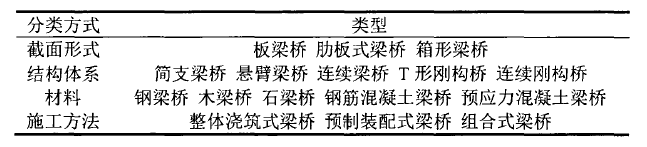 分类方式 类型
截面形式 板梁桥 肋板式梁桥 箱形梁桥
结构体系 简支梁桥 悬臂梁桥 连续梁桥 T 形刚构桥 连续刚构桥
材料 钢梁桥 木梁桥 石梁桥 钢筋混凝土梁桥 预应力混凝土梁桥
施工方法 整体浇筑式梁桥 预制装配式梁桥 组合式梁桥